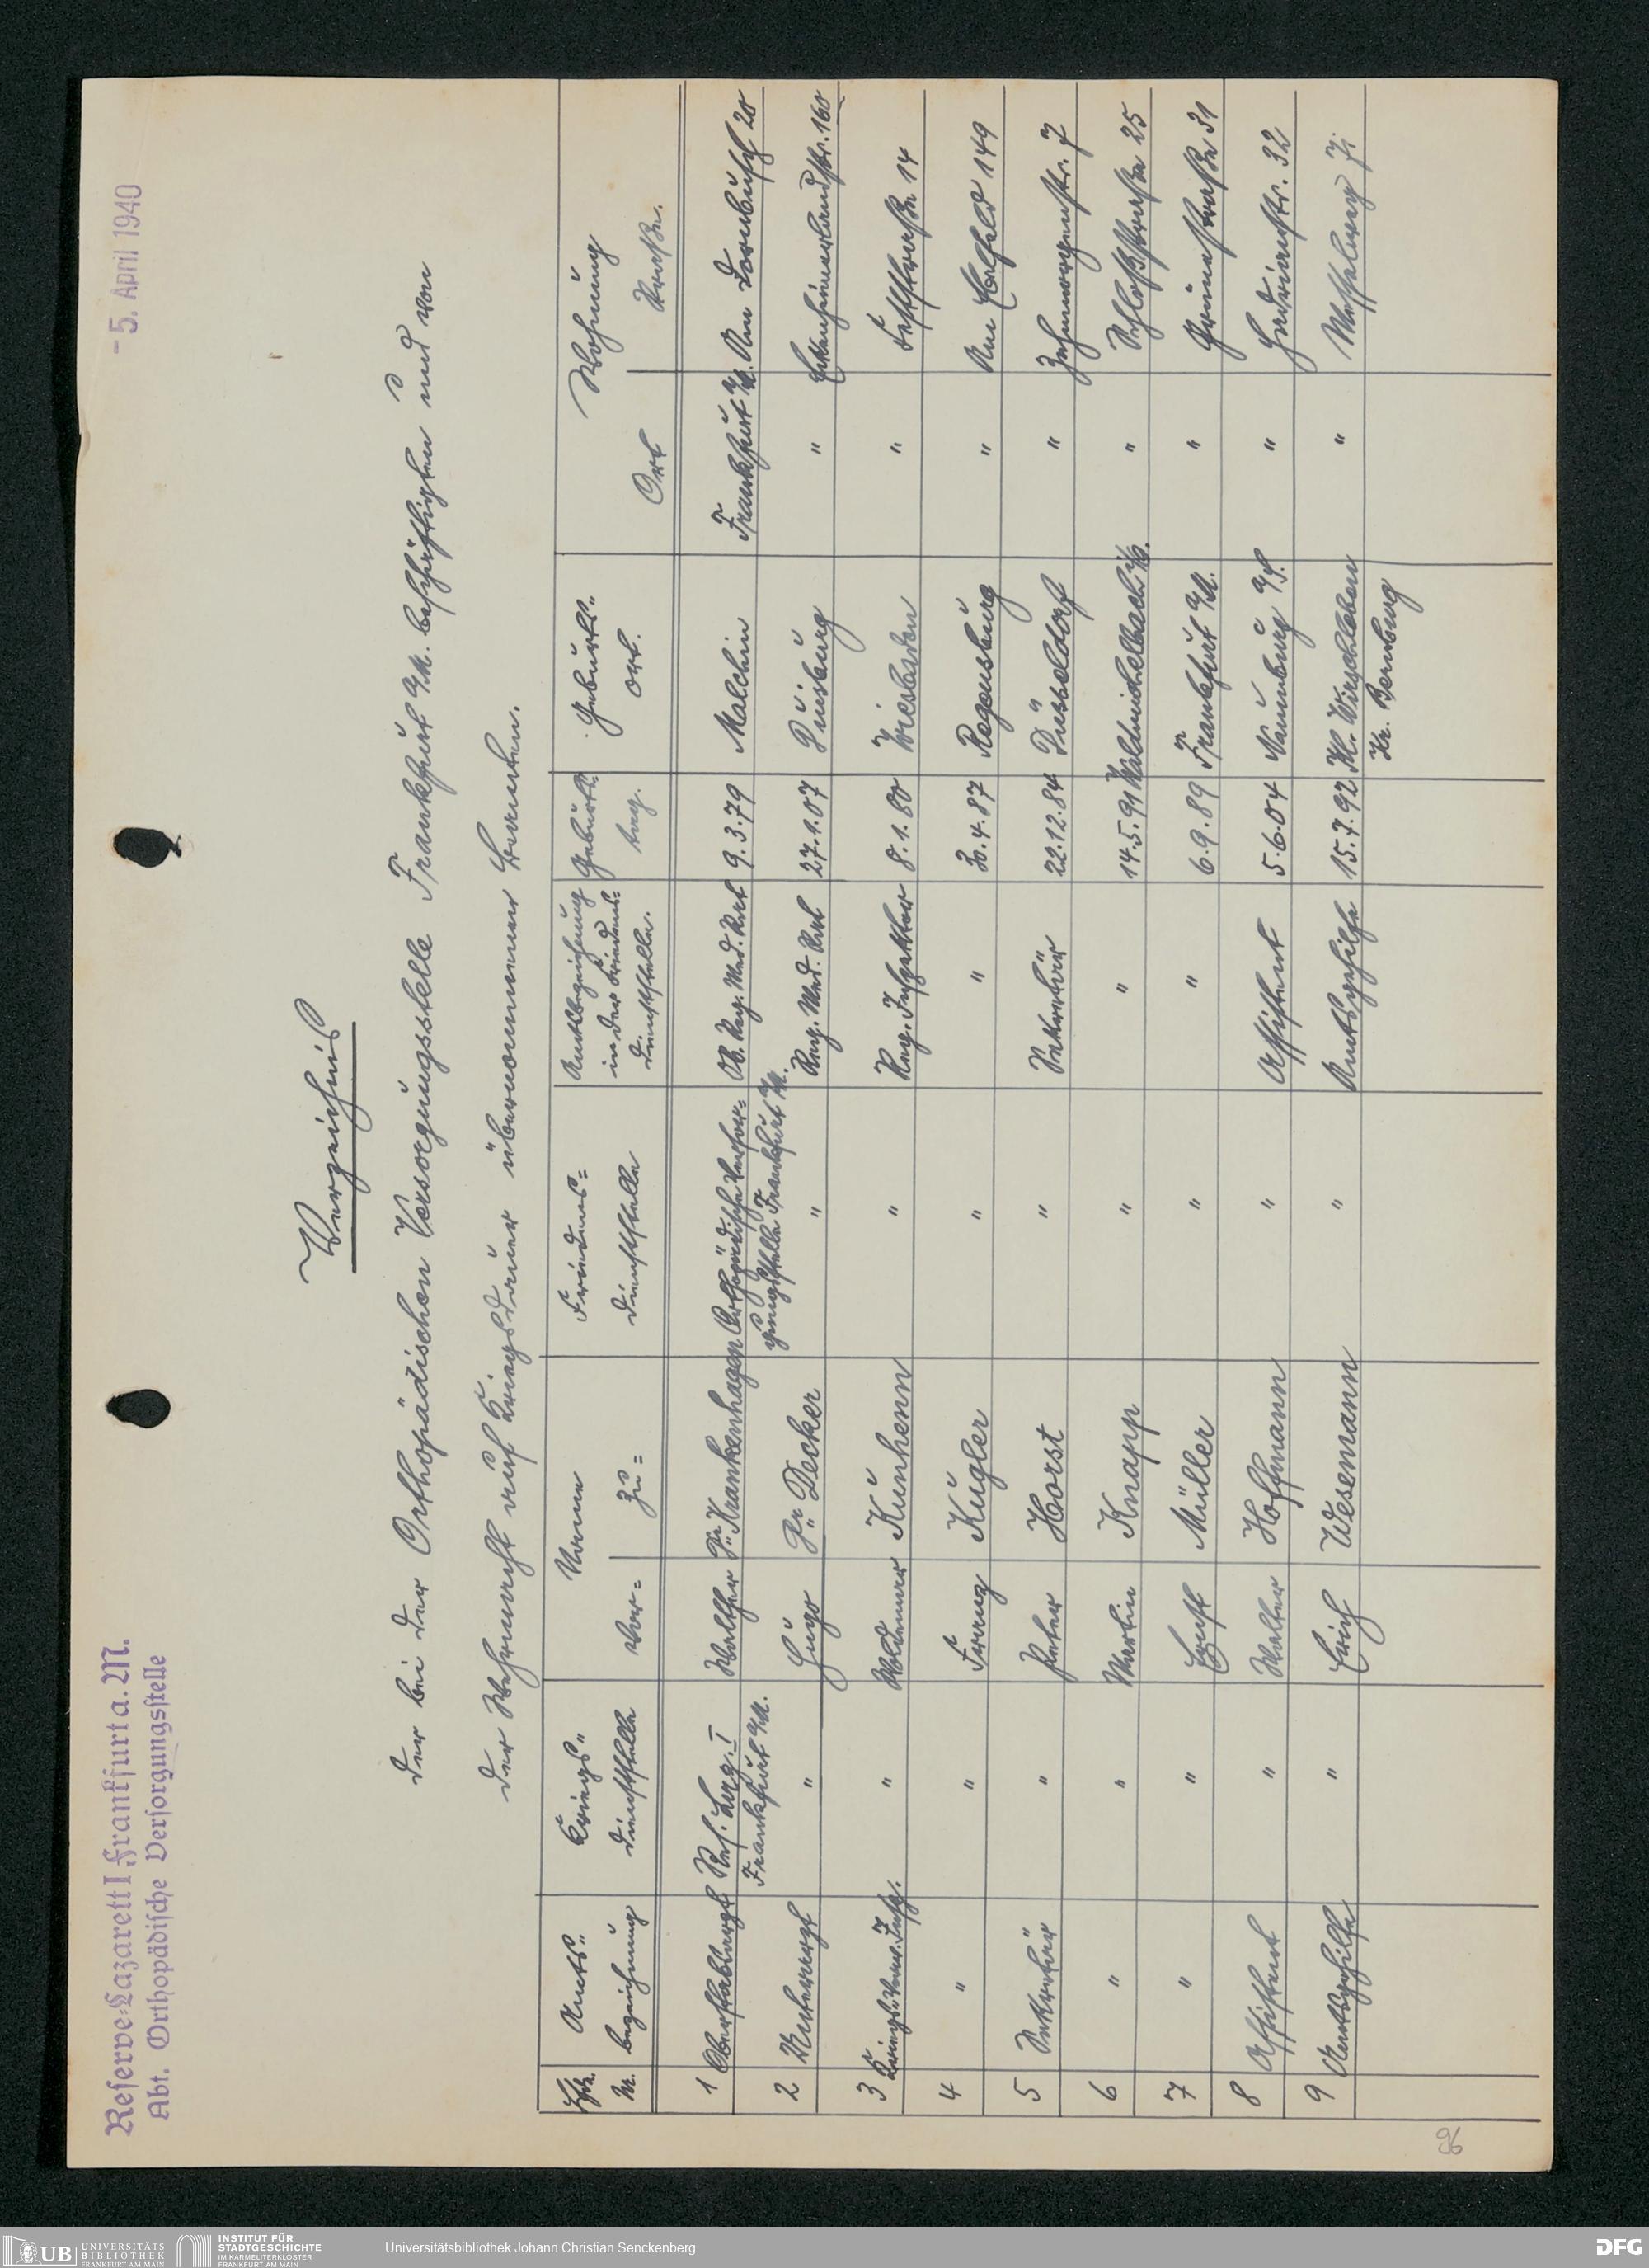 Reserve-Lazarett I Frankfurt a. M.
Abt. Orthopädische Versorgungsstelle
- 5. April 1940
Verzeichnis
der bei der Orthopädischen Versorgungsstelle Frankfurt a/M. beschäftigten und von
der Wehrmacht auf Kriegsdauer übernommener Beamten.
Lfde. Nr. Amts- bezeichnung Kriegs- dienststelle Name Vor- Zu- Friedens- dienststelle Amtsbezeichnung in der Friedens- dienststelle. Geburts- tag. Geburts- ort. Wohnung Ort Straße.
1 Oberstabsarzt Res. Laz. I Frankfurt a/M. Walther Dr. Krankenhagen Orthopädische Versor- gungsstelle Frankfurt a/M. Ob. Reg. Med. Rat 9.3.79 Malchin Frankfurt a/M. Am Dornbusch 20
2 Unterarzt " Hugo Dr. Decker " Reg. Med. Rat 27.1.07 Duisburg " Eckenheimerlandstr. 160
3 Kriegsverw. Insp. " Waldemar Kunhenn " Reg. Inspektor 8.1.80 Wiesbaden " 14
4 " " Franz Kugler " " 30.4.87 Regensburg " 149
5 Sekretär " Peter Horst " Sekretär 22.12.84 Düsseldorf " Zehnmorgenstr. 7
6 " " Martin Knapp " " 14.5.91 Waldmichelbach " Schloßstraße 25
7 " " Ernst Müller " " 6.9.89 Frankfurt a/M. " Grünestraße 31
8 Assistent " Walter Hoffmann " Assistent 5.6.04 Naumburg a/S. " 32
9 Amtsgehilfe " Erich Wesemann " Amtsgehilfe 15.7.92 Kl. Wirschleben Kr. Bernburg "
96
UB UNIVERSITÄTS BIBLIOTHEK FRANKFURT AM MAIN
INSTITUT FÜR STADTGESCHICHTE IM KARMELITERKLOSTER FRANKFURT AM MAIN
Universitätsbibliothek Johann Christian Senckenberg
DFG